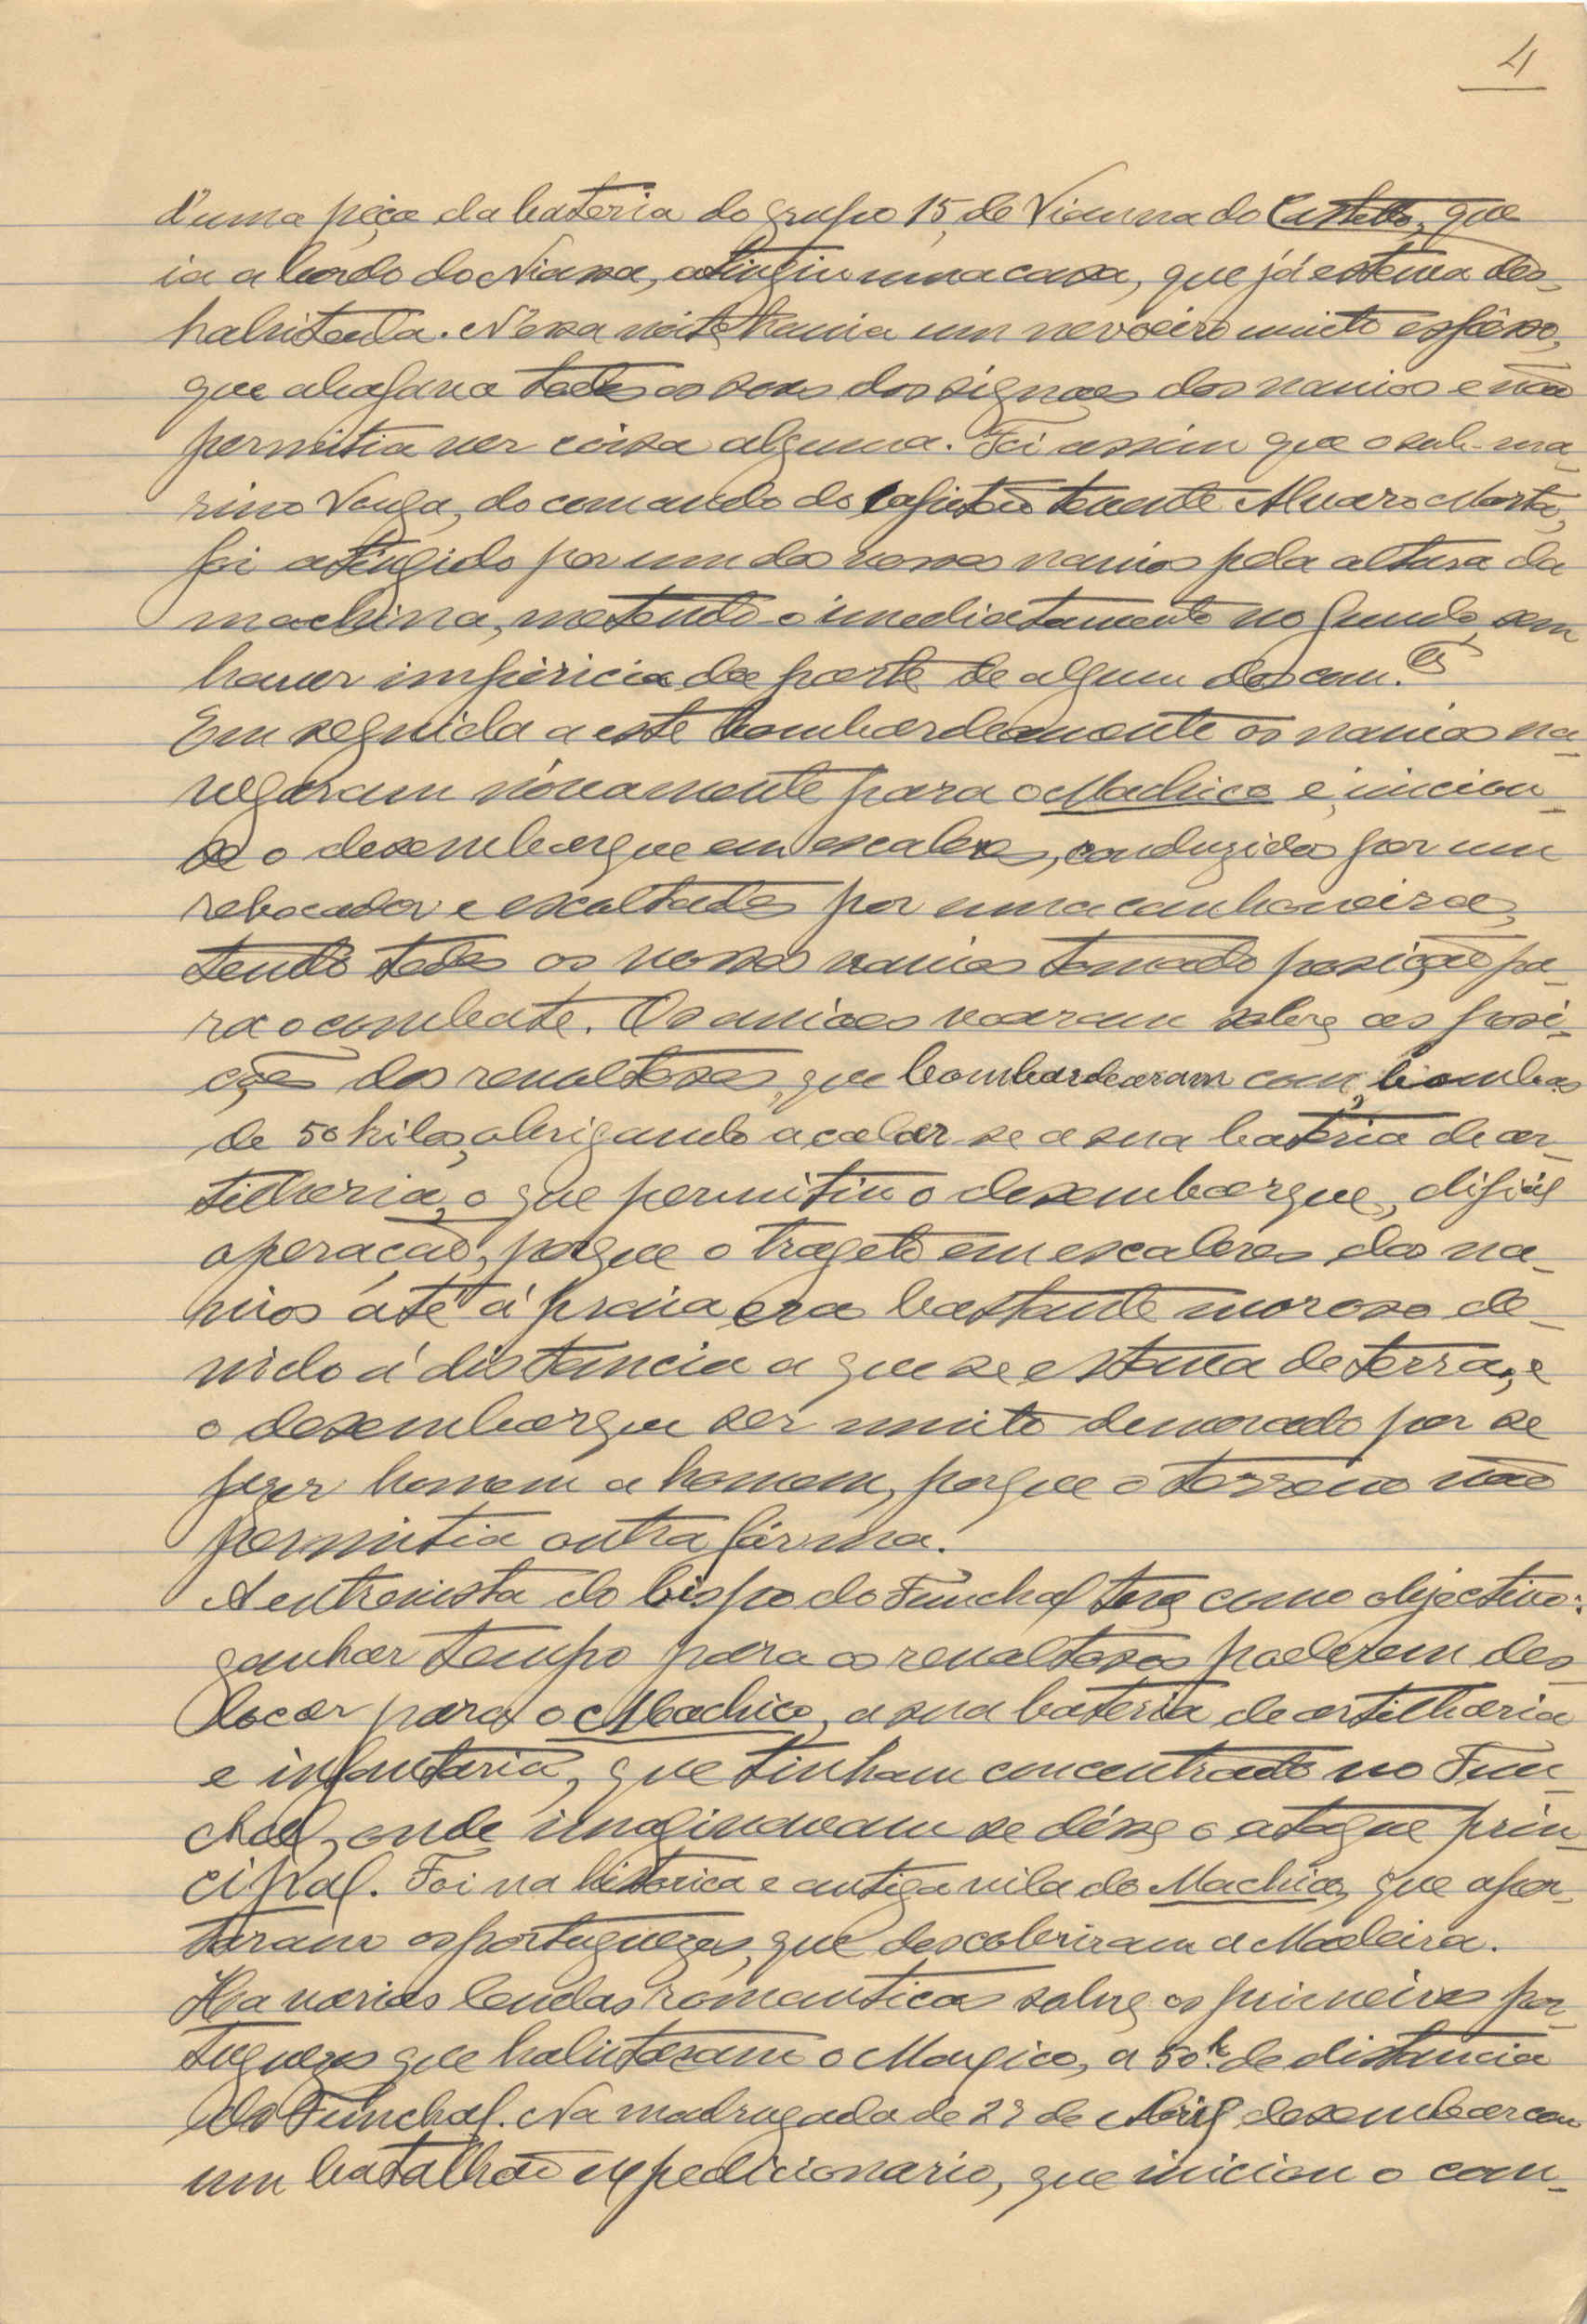 4
d'uma peça da bateria do grupo 15, de Vianna do Castello, que
ia a bordo do Niassa, atingiu uma casa, que já estava des-
habitada. Nessa noite havia um nevoeiro muito espêsso,
que abafava todos os sons dos signaes dos navios e não
permitia ver cousa alguma. Foi assim que o sub-ma-
rino Vouga, do comando do capitão tenente Alvaro Marta,
foi atingido por um dos nossos navios pela altura da
machina, metendo-o imediatamente no fundo, sem
haver impericia da parte de algum dos com.es
Em seguida a este bombardeamento os navios na-
vegaram nóvamente para o Machico e iniciou-
se o desembarque em escaleres, conduzidos por um
rebocador e escoltados por uma canhoneira,
tendo todos os nossos navios tomado posição pa-
ra o combate. Os aviões voaram sobre as posi-
ções dos revoltosos, que bombardearam com bombas
de 50 kilos, obrigando a calar-se a sua bateria de ar-
tilheria, o que permitiu o desembarque, dificil
operacão, porque o trageto em escaleres dos na-
vios até á praia era bastante moroso de-
vido á distancia a que se estava de terra, e
o desembarque ser muito demorado por se
fazer homem a homem, porque o terreno não
permitia outra fórma.
A entrevista do bispo do Funchal teve como objectivo:
ganhar tempo para os revoltosos poderem des-
locar para o Machico, a sua bateria de artilharia
e infantaria, que tinham concentrado no Fun-
chal, onde imaginavam se désse o ataque prin-
cipal. Foi na historica e antiga vila do Machico, que apor-
taram os portuguezes, que descobriram a Madeira.
Ha varias lendas romanticas sobre os primeiros por-
tuguezes que habitaram o Maxico, a 50k de distancia
do Funchal. Na madrugada de 27 de Abril desembarcou
um batalhão expedicionario, que iniciou o com-